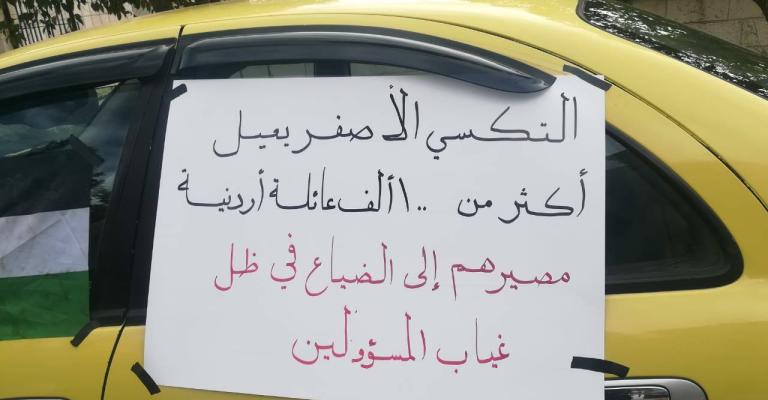 التكسي الأصفر يعيل
أكثر من ١٠٠ ألف عائلة أردنية
مصيرهم إلى الضياع في ظل
غياب المسؤولين